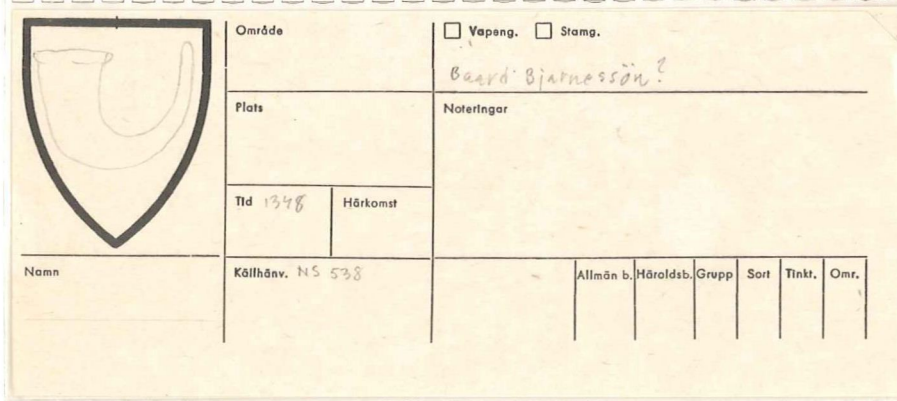 Område
Vapeng. Stamg.
Baard Bjarnessön?
Plats
Noteringar
Tid 1348
Härkomst
Namn
Källhänv. NS 538
Allmän b. Häroldsb. Grupp Sort Tinkt. Omr.